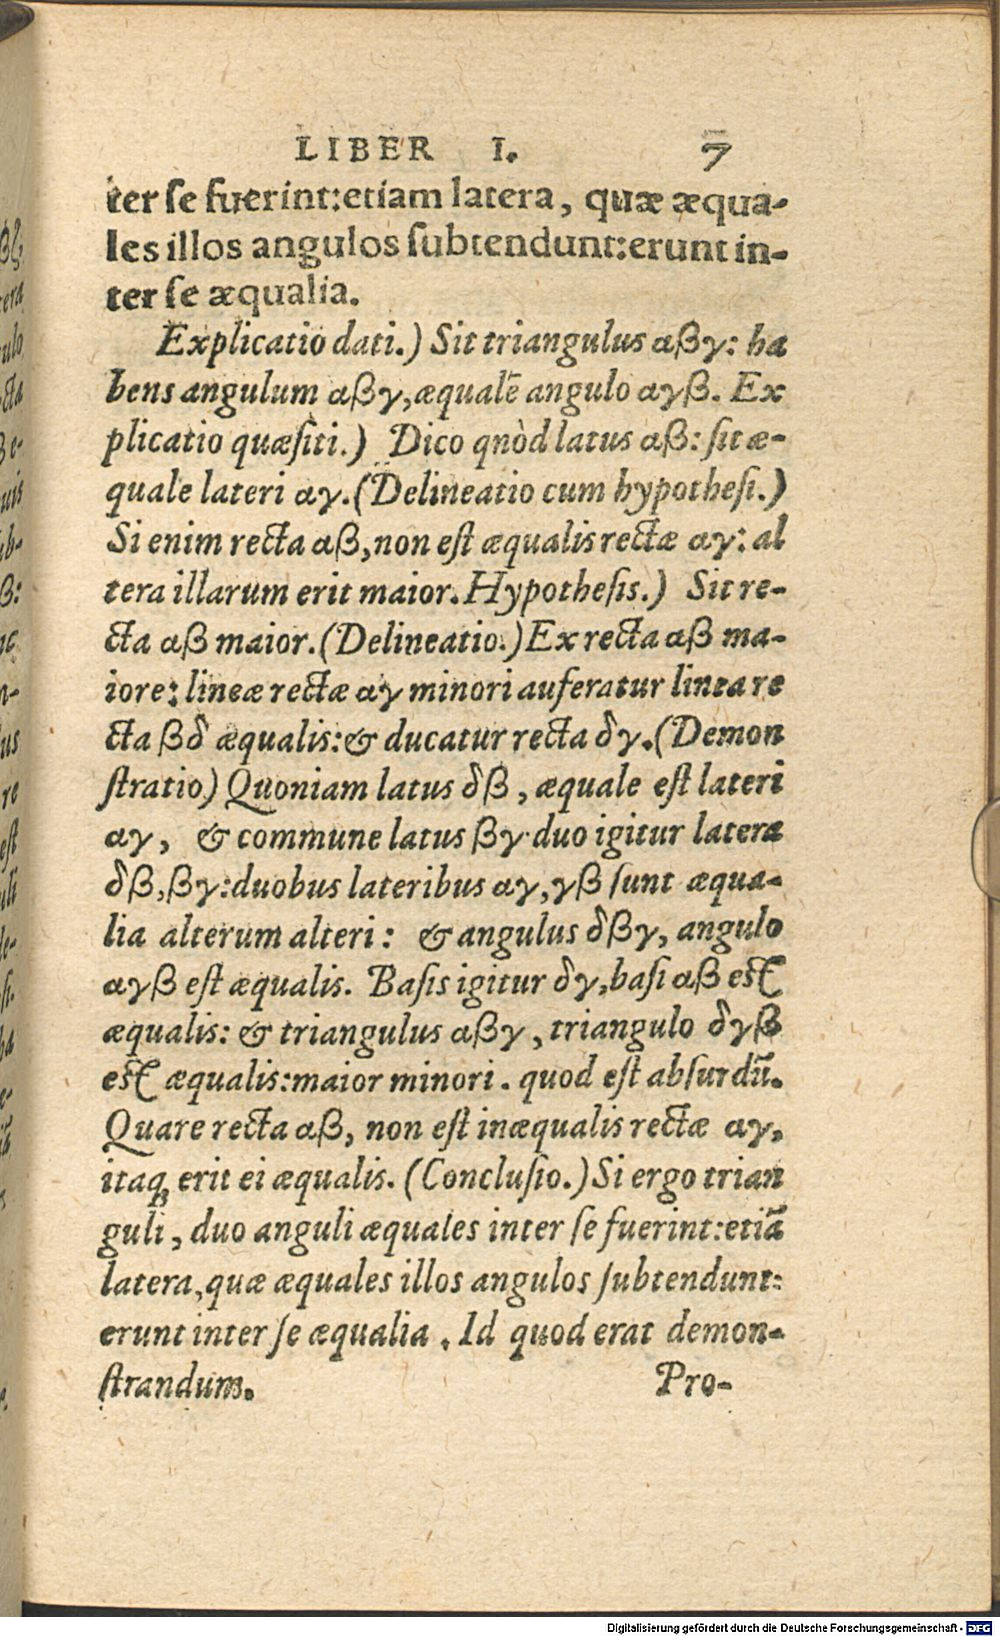 LIBER I. 7
ter se fuerint:etiam latera, quæ æqua-
les illos angulos subtendunt:erunt in-
ter se æqualia.
Explicatio dati.) Sit triangulus αβγ: ha
bens angulum αβγ,æqualē angulo αγβ. Ex
plicatio quæsiti.) Dico qnòd latus αβ: sit æ-
quale lateri αγ.(Delineatio cum hypothesi.)
Si enim recta αβ,non est æqualis rectæ αγ: al
tera illarum erit maior. Hypothesis.) Sit re-
cta αβ maior.(Delineatio.) Ex recta αβ ma-
iore: lineæ rectæ αγ minori auferatur linea re
cta βδ æqualis:& ducatur recta δγ.(Demon
stratio) Quoniam latus δβ, æquale est lateri
αγ, & commune latus βγ· duo igitur latera
δβ,βγ:duobus lateribus αγ,γβ sunt æqua-
lia alterum alteri: & angulus δβγ, angulo
αγβ est æqualis. Basis igitur δγ,basi αβ est
æqualis: & triangulus αβγ, triangulo δγβ
est æqualis:maior minori. quod est absurdū.
Quare recta αβ, non est inæqualis rectæ αγ,
itaq; erit ei æqualis. (Conclusio.) Si ergo trian
guli, duo anguli æquales inter se fuerint:etiā
latera,quæ æquales illos angulos subtendunt:
erunt inter se æqualia. Id quod erat demon-
strandum. Pro-
Digitalisierung gefördert durch die Deutsche Forschungsgemeinschaft - DFG